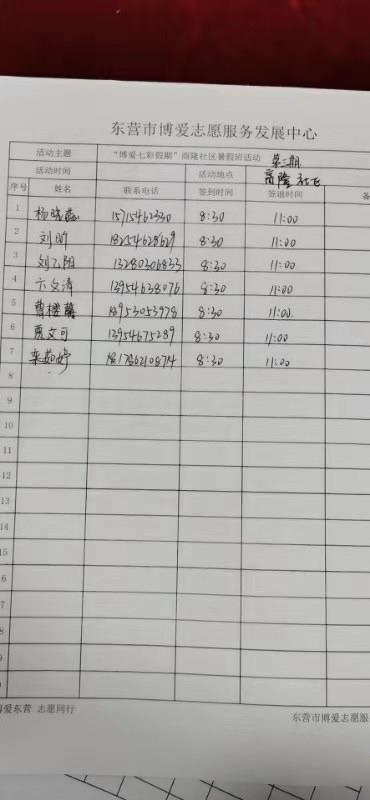 东营市博爱志愿服务发展中心
活动主题 “博爱七彩假期”商隆社区暑假班活动 第二期
活动时间 活动地点 商隆社区
序号 姓名 联系电话 签到时间 签退时间 备
1 杨晓磊 15715462330 8:30 11:00
2 刘昕 18254628629 8:30 11:00
3 刘乙阳 13280306833 8:30 11:00
4 卞文涛 13954638076 8:30 11:00
5 18953053978 8:30 11:00
6 贾文可 13954675289 8:30 11:00
7 栾茹婷 181786210874 8:30 11:00
8
9
10
11
12
13
14
15
6
7
8
9
博爱东营 志愿同行 东营市博爱志愿服